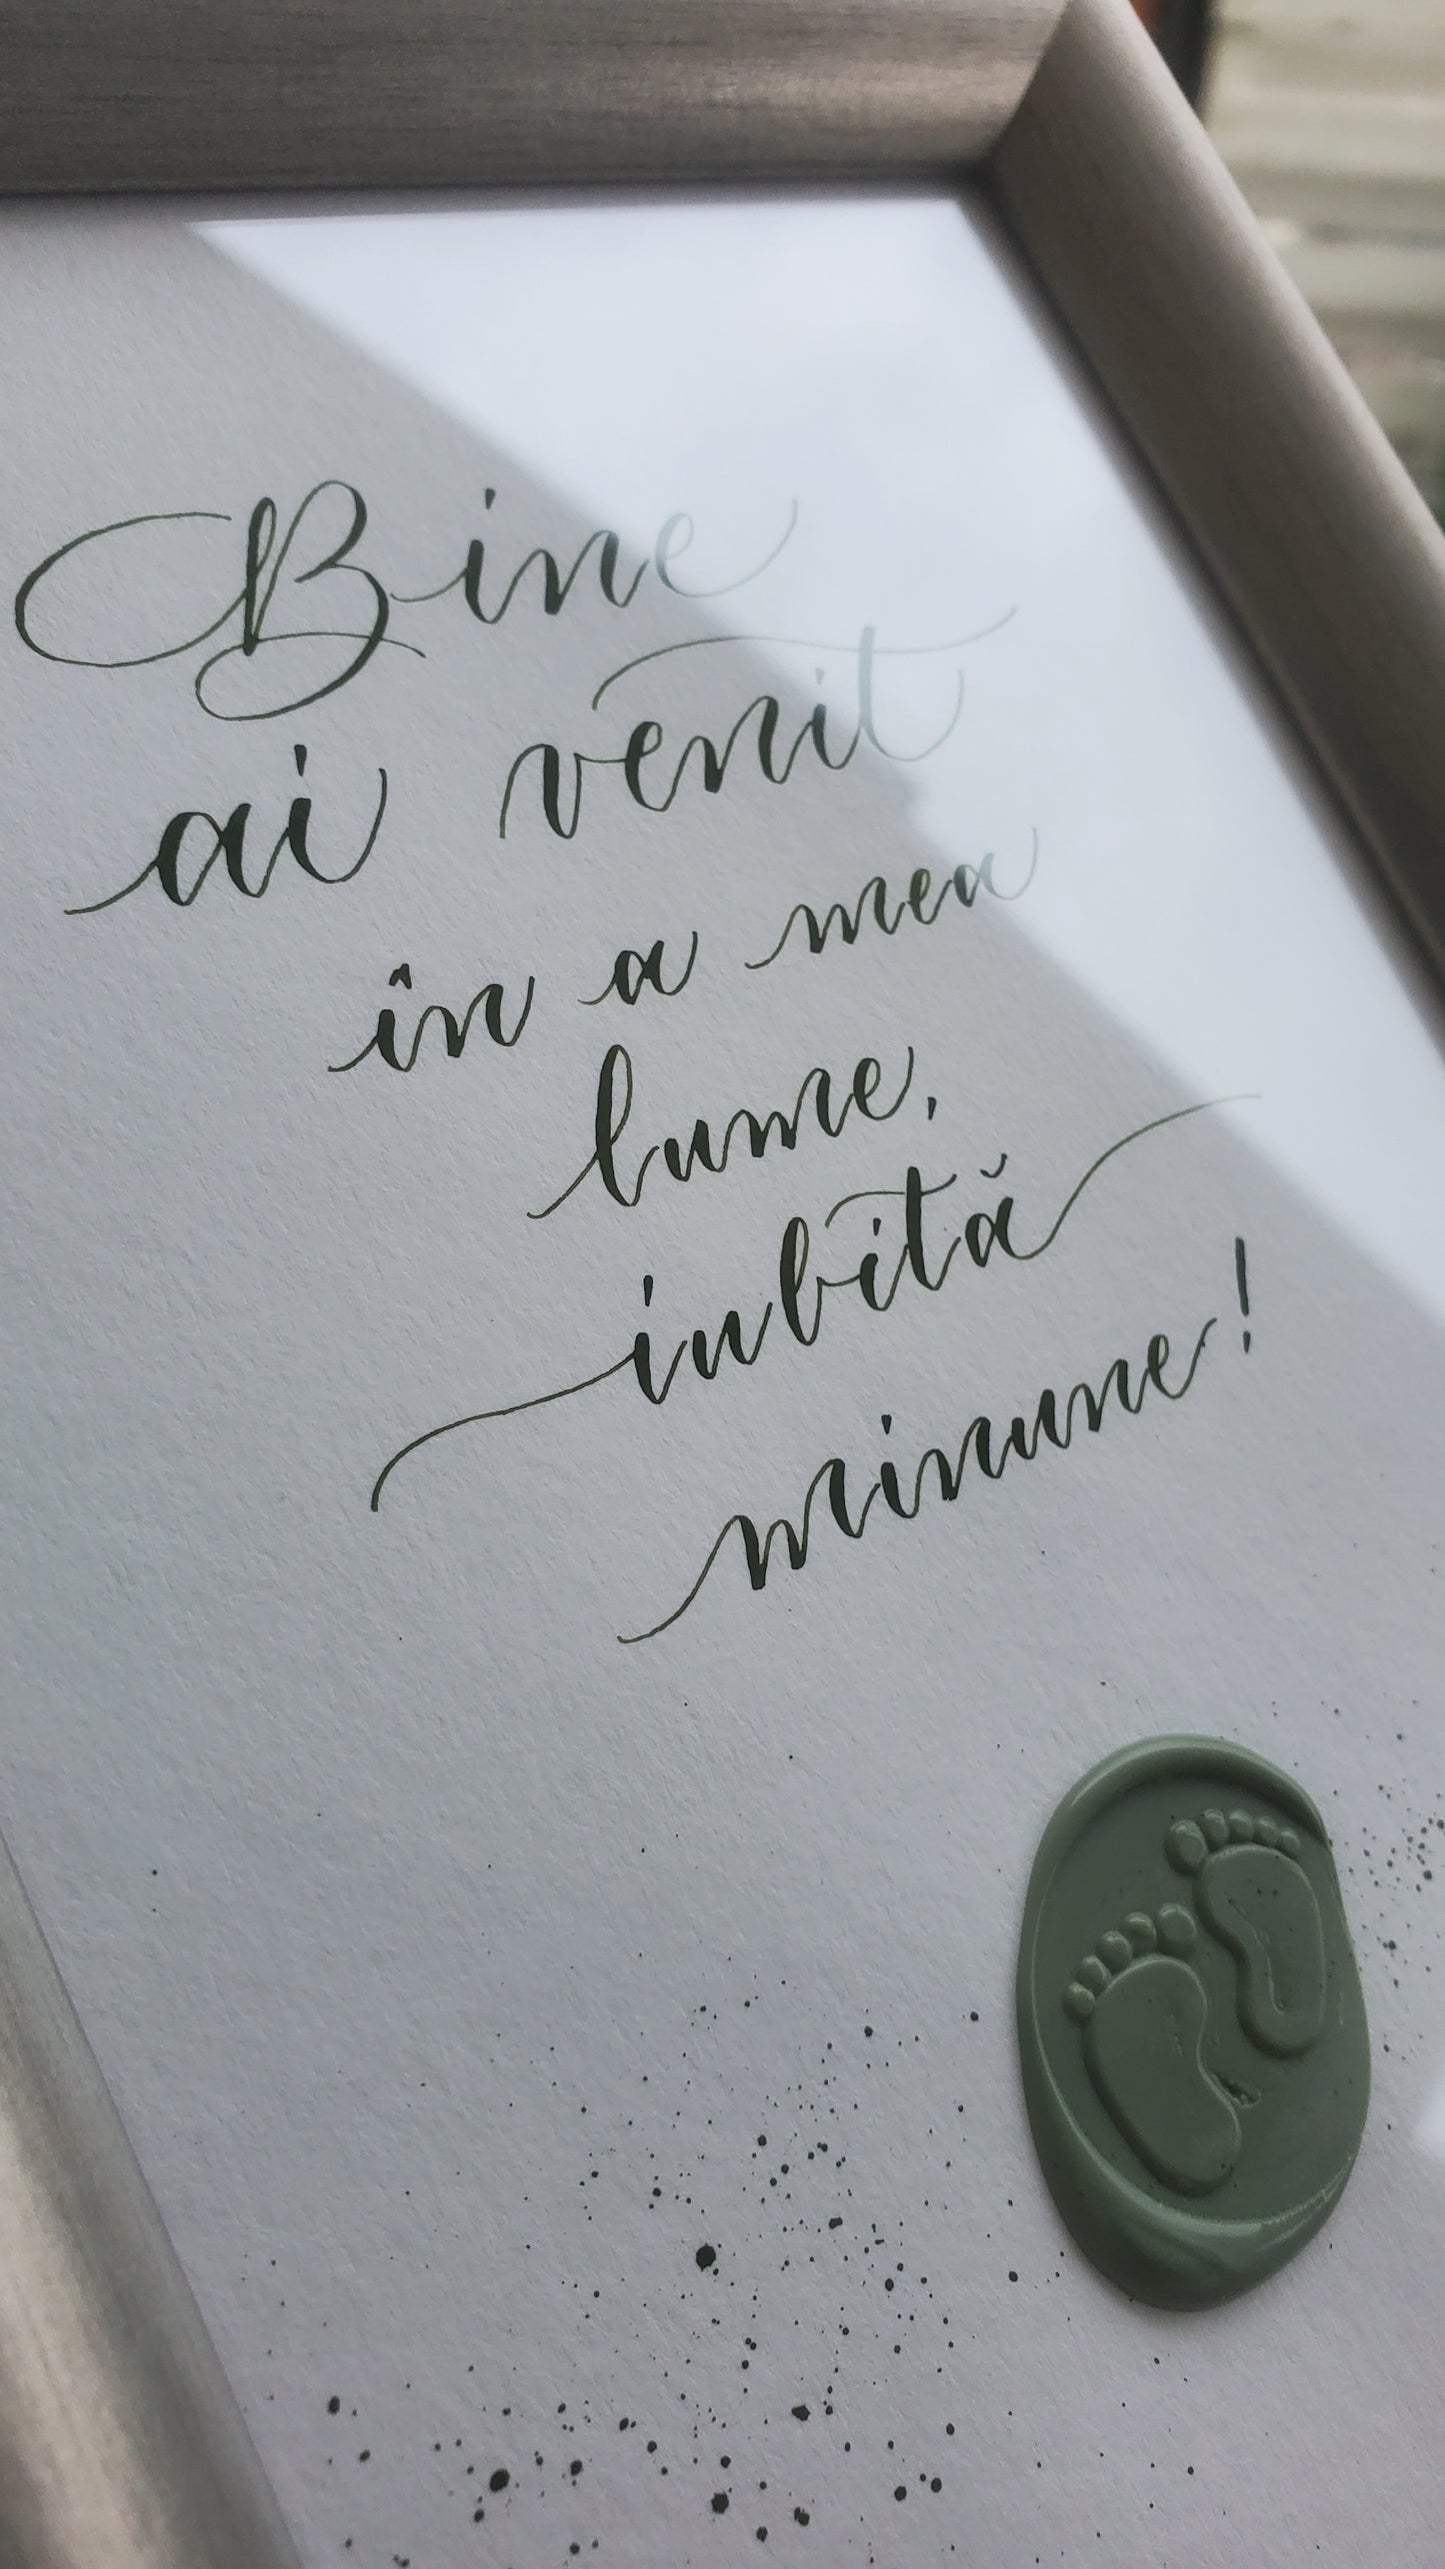 Bine
ai venit
în a mea
lume,
iubită
minune!